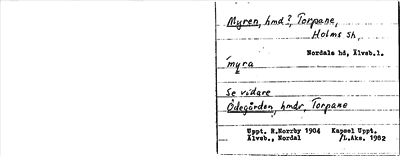 Myren, hmd?, Torpane,
Holms sh,
Nordals hd, Älvsb.l.
myra
Se vidare
Ödegården, hmdr, Torpane
Uppt. R.Norrby 1904 Kapsel Uppt.
Älvsb., Nordal /L.Aks. 1982